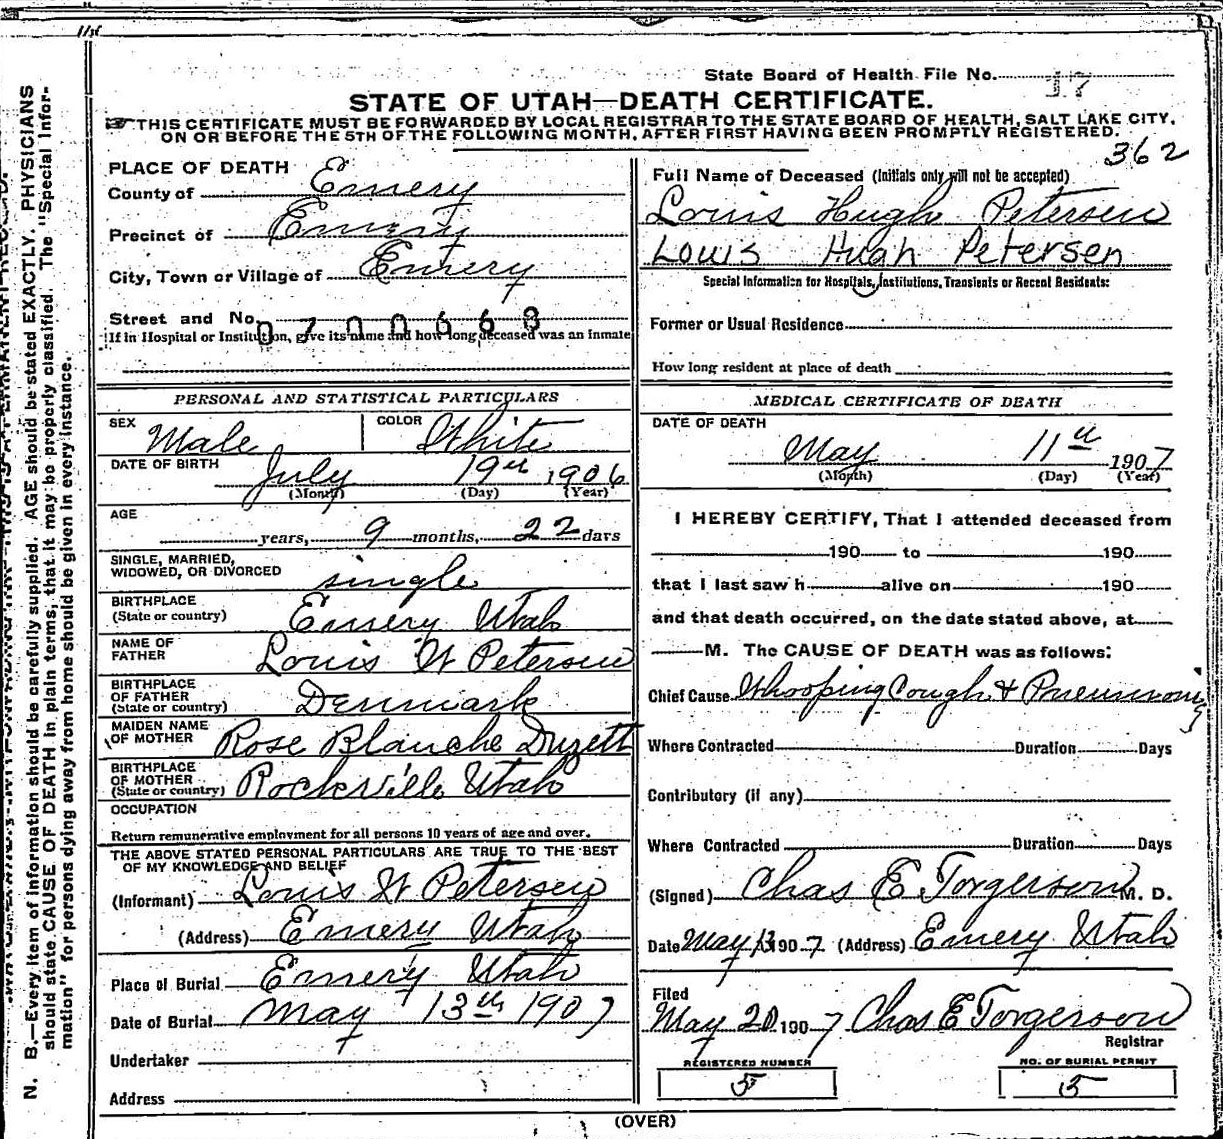 State Board of Health File No. 17
STATE OF UTAH—DEATH CERTIFICATE.
THIS CERTIFICATE MUST BE FORWARDED BY LOCAL REGISTRAR TO THE STATE BOARD OF HEALTH, SALT LAKE CITY,
ON OR BEFORE THE 5TH OF THE FOLLOWING MONTH, AFTER FIRST HAVING BEEN PROMPTLY REGISTERED.
362
N. B.—Every item of information should be carefully supplied. AGE should be stated EXACTLY. PHYSICIANS
should state CAUSE OF DEATH in plain terms, that it may be properly classified. The "Special Infor-
mation" for persons dying away from home should be given in every instance.
PLACE OF DEATH
County of Emery
Precinct of Emery
City, Town or Village of Emery
Street and No. 0700668
If in Hospital or Institution, give its name and how long deceased was an inmate
PERSONAL AND STATISTICAL PARTICULARS
SEX Male COLOR White
DATE OF BIRTH July 19th 1906
(Month) (Day) (Year)
AGE
years, 9 months, 22 days
SINGLE, MARRIED,
WIDOWED, OR DIVORCED single
BIRTHPLACE
(State or country) Emery Utah
NAME OF
FATHER Louis W Petersen
BIRTHPLACE
OF FATHER
(State or country) Denmark
MAIDEN NAME
OF MOTHER Rose Blanche Duzett
BIRTHPLACE
OF MOTHER
(State or country) Rockville Utah
OCCUPATION
Return remunerative employment for all persons 10 years of age and over.
THE ABOVE STATED PERSONAL PARTICULARS ARE TRUE TO THE BEST
OF MY KNOWLEDGE AND BELIEF
(Informant) Louis W Petersen
(Address) Emery Utah
Place of Burial Emery Utah
Date of Burial May 13th 1907
Undertaker
Address
Full Name of Deceased (Initials only will not be accepted)
Louis Hugh Petersen
Louis Hugh Petersen
Special Information for Hospitals, Institutions, Transients or Recent Residents:
Former or Usual Residence
How long resident at place of death
MEDICAL CERTIFICATE OF DEATH
DATE OF DEATH
May 11th 1907
(Month) (Day) (Year)
I HEREBY CERTIFY, That I attended deceased from
190 to 190
that I last saw h alive on 190
and that death occurred, on the date stated above, at
M. The CAUSE OF DEATH was as follows:
Chief Cause Whooping Cough & Pneumonia
Where Contracted Duration Days
Contributory (if any)
Where Contracted Duration Days
(Signed) Chas E Torgerson M. D.
Date May 13 1907 (Address) Emery Utah
Filed
May 20 1907 Chas E Torgerson
Registrar
REGISTERED NUMBER
5
NO. OF BURIAL PERMIT
5
(OVER)